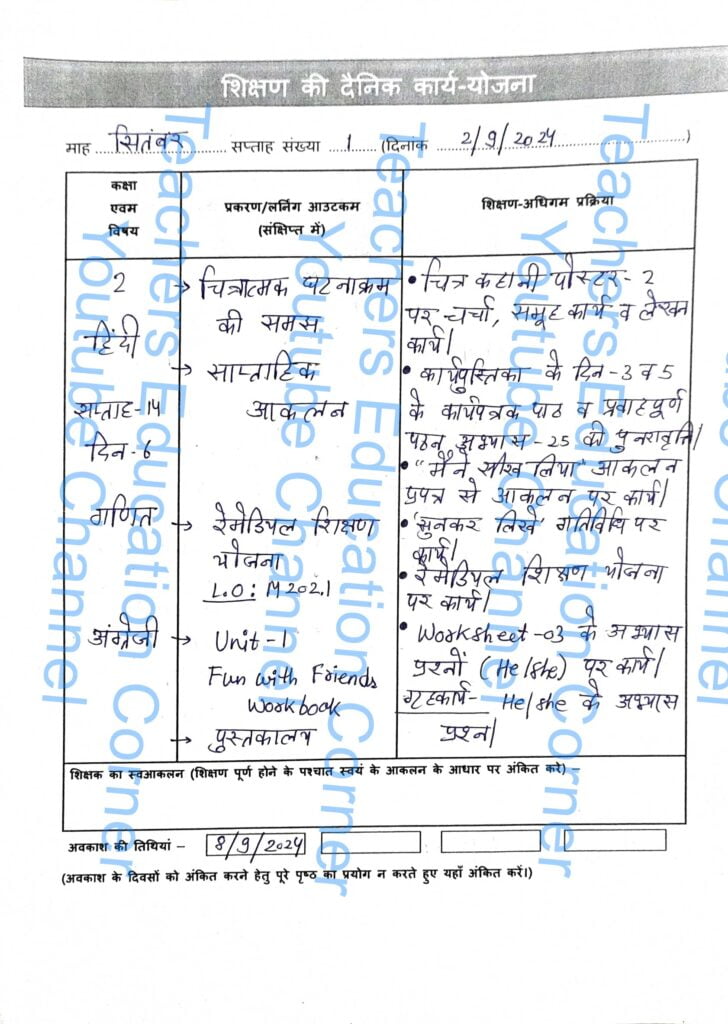 शिक्षण की दैनिक कार्य-योजना
माह सितंबर सप्ताह संख्या 1 (दिनांक 2/9/2024)
कक्षा
एवम
विषय
प्रकरण/लर्निंग आउटकम
(संक्षिप्त में)
शिक्षण-अधिगम प्रक्रिया
2
हिंदी
सप्ताह-14
दिन-6
गणित
अंग्रेजी
→ चित्रात्मक घटनाक्रम
की समझ
→ साप्ताहिक
आकलन
→ रेमेडियल शिक्षण
योजना
L.O: M202.1
→ Unit-1
Fun with Friends
Workbook
→ पुस्तकालय
• चित्र कहानी पोस्टर-2
पर चर्चा, समूह कार्य व लेखन
कार्य।
• कार्यपुस्तिका के दिन-3 व 5
के कार्यपत्रक पाठ व प्रवाहपूर्ण
पठन अभ्यास-25 की पुनरावृत्ति।
• "मैंने सीख लिया" आकलन
प्रपत्र से आकलन पर कार्य।
• 'सुनकर लिखें' गतिविधि पर
कार्य।
• रेमेडियल शिक्षण योजना
पर कार्य।
• Worksheet-03 के अभ्यास
प्रश्नों (He/she) पर कार्य।
गृहकार्य- He/she के अभ्यास
प्रश्न।
शिक्षक का स्वआकलन (शिक्षण पूर्ण होने के पश्चात स्वयं के आकलन के आधार पर अंकित करे) –
अवकाश की तिथियां – 8/9/2024
(अवकाश के दिवसों को अंकित करने हेतु पूरे पृष्ठ का प्रयोग न करते हुए यहाँ अंकित करें।)
Teachers Education Corner
Youtube Channel
Teachers Education Corner
Youtube Channel
Teachers Education Corner
Youtube Channel